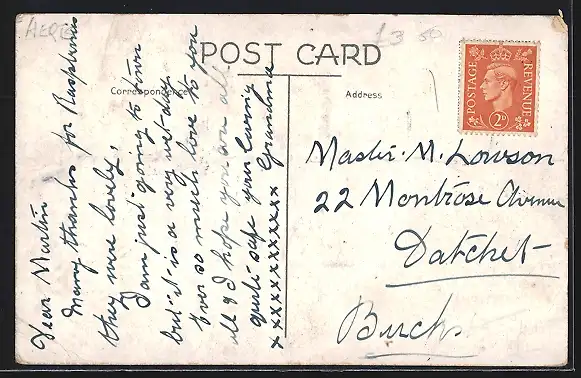 AERO
£3.00
POST CARD
Correspondence
Address
POSTAGE
REVENUE
2D
Dear Martin
Many thanks for Raspberries
they were lovely,
I am just going to town
but it is a very wet day
Ever so much love to you
all & I hope you are all
quite safe your loving
xxxxxxxxxxx Grandma
Master. M. Lowson
22 Montrose Avenue
Datchet
Bucks